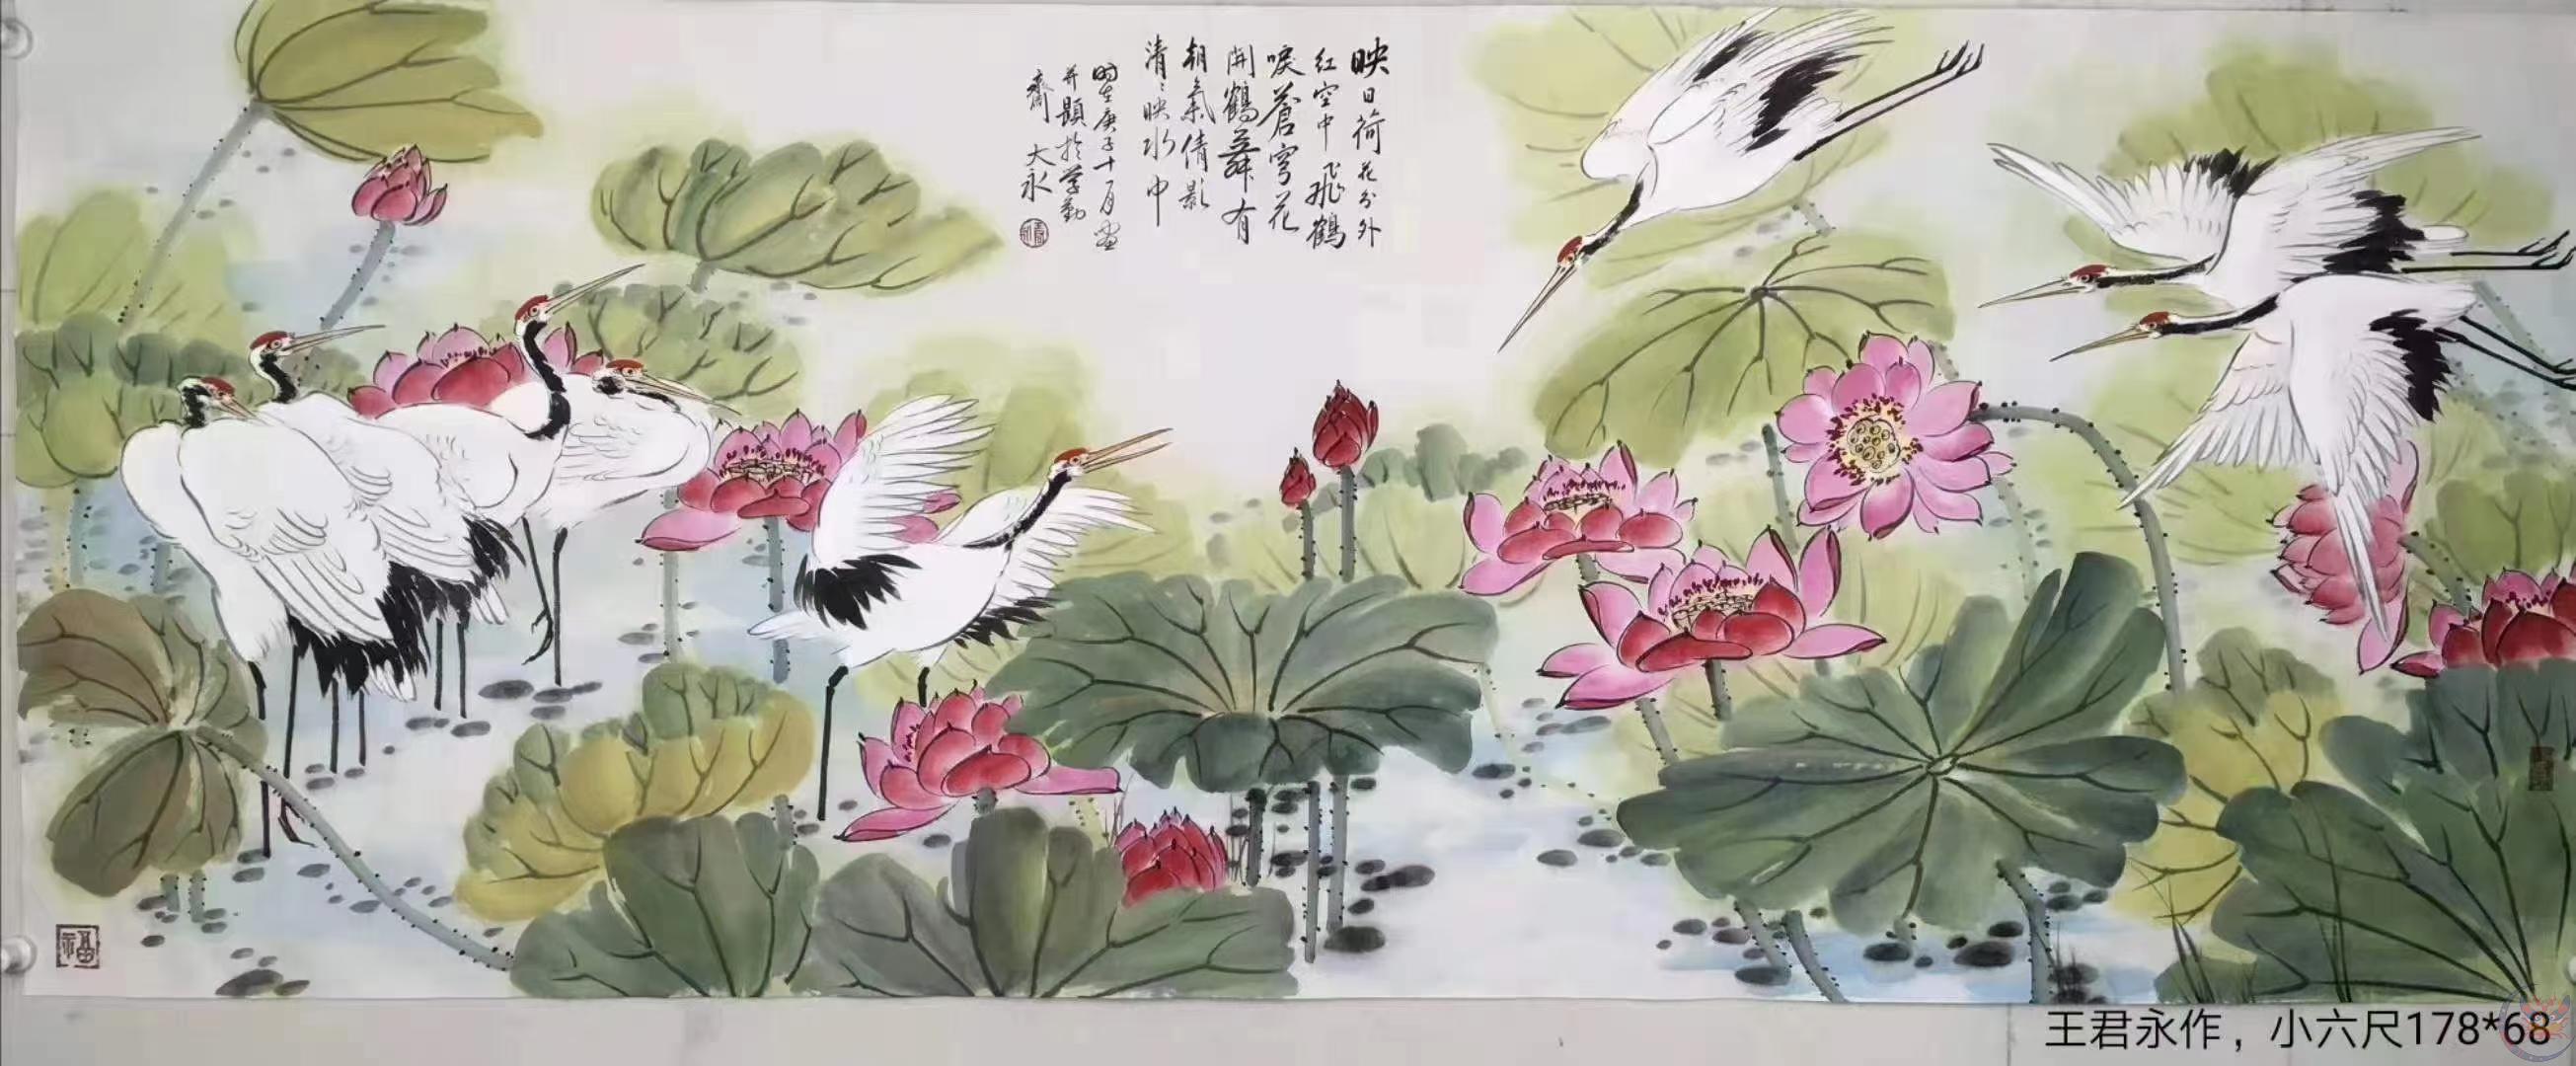 映日荷花分外
红空中飛鶴
唳蒼穹花
開鶴舞有
朝氣倩影
清清映水中
时在庚子十月画
并題於学勤
齋 大永
福
王君永作，小六尺178*68